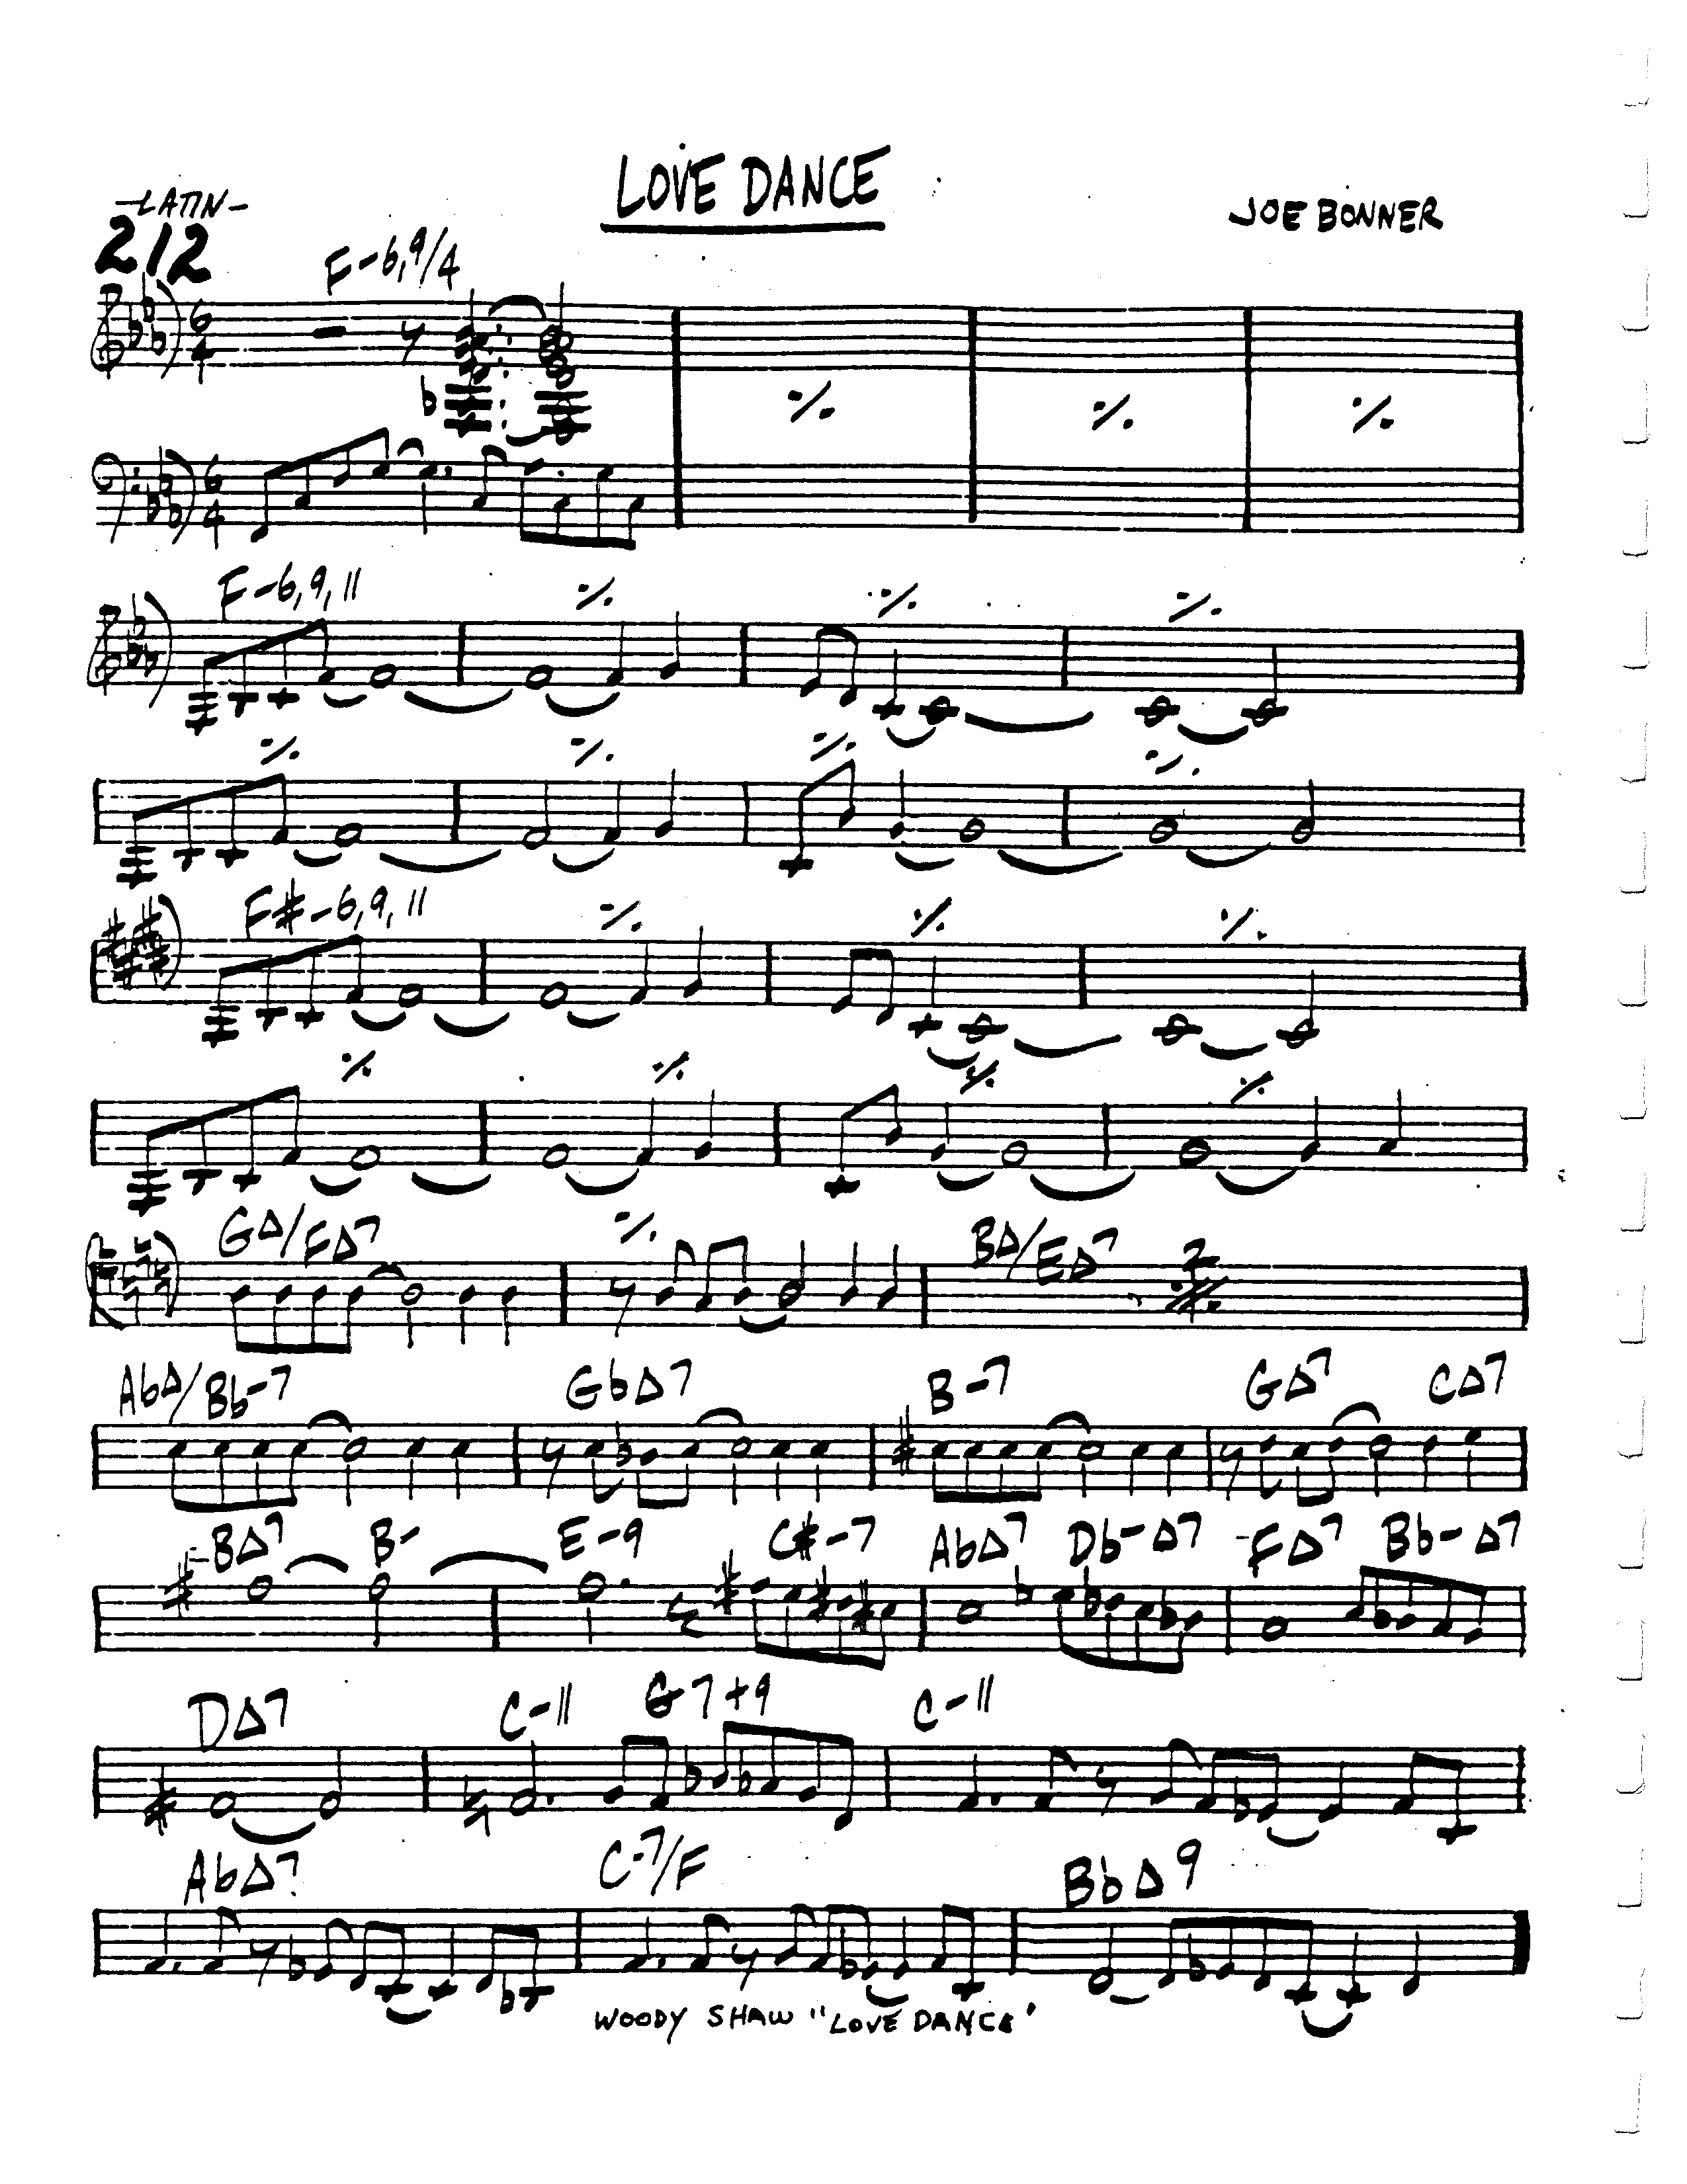 LOVE DANCE
-LATIN-
JOE BONNER
212
F-6,9/4
6 4
6 4
F-6,9,11
F#-6,9,11
G△/F△7
B△/E△7
2
Ab△/Bb-7 Gb△7 B-7 G△7 C△7
B△7 B- E-9 C#-7 Ab△7 Db-△7 F△7 Bb-△7
D△7 C-11 G7+9 C-11
Ab△7 C-7/F Bb△9
WOODY SHAW "LOVE DANCE"